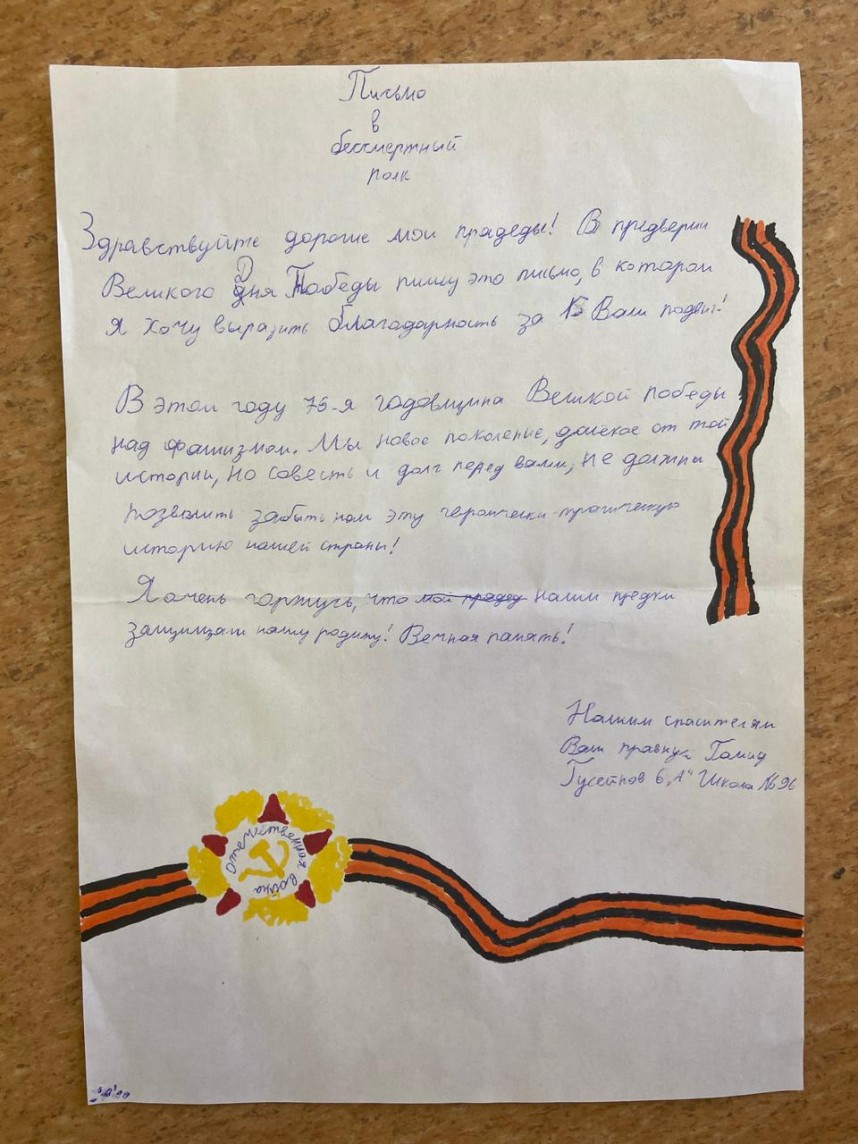 Письмо
в
бессмертный
полк
Здравствуйте дорогие мои прадеды! В предверии
Великого Дня Победы пишу это письмо, в котором
я хочу выразить благодарность за Ваш подвиг!
В этом году 75-я годовщина Великой победы
над фашизмом. Мы новое поколение, далёкое от той
истории, но совесть и долг перед вами, не должны
позволить забыть нам эту героически-трагическую
историю нашей страны!
Я очень горжусь, что мой прадед наши предки
защищали нашу родину! Вечная память!
Нашим спасителям
Ваш правнук Гамид
6 „А" Школа №96
Отечественная война